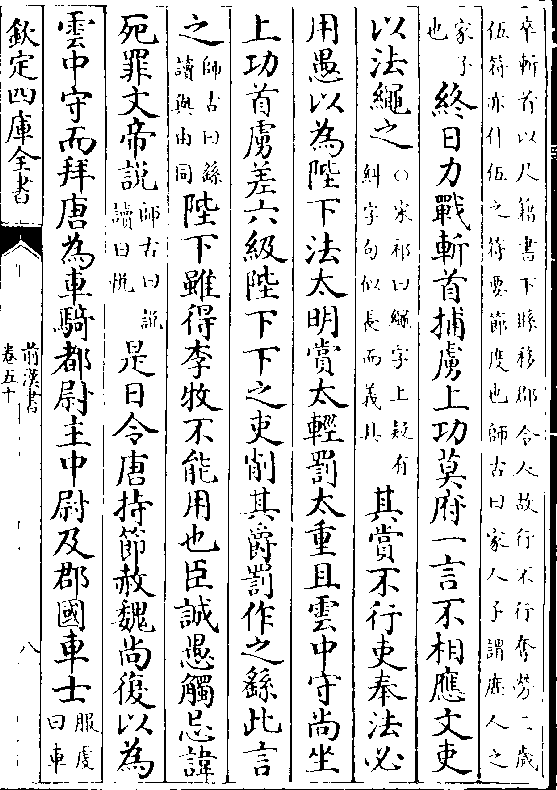 卒斬首以尺籍書下縣移郡令人故行不行奪勞二歲
伍符亦什伍之符要節度也師古曰家人子謂庶人之
家子
也
終日力戰斬首捕虜上功莫府一言不相應文吏
以法繩之
○宋祁曰繩字上疑有
糾字句似長而義具
其賞不行吏奉法必
用愚以為陛下法太明賞太輕罰太重且雲中守尚坐
上功首虜差六級陛下下之吏削其爵罰作之繇此言
之
師古曰繇
讀與由同
陛下雖得李牧不能用也臣誠愚觸忌諱
死罪文帝說
師古曰說
讀曰悅
是日令唐持節赦魏尚復以為
雲中守而拜唐為車騎都尉主中尉及郡國車士
服虔
曰車
欽定四庫全書
前漢書
卷五十
八